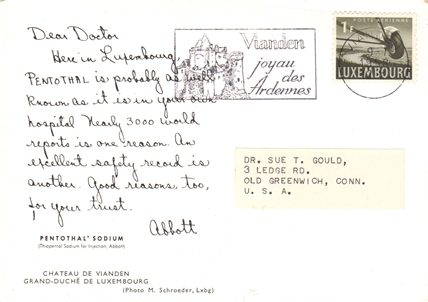 Dear Doctor
Here in Luxembourg,
PENTOTHAL® is probably as well
known as it is in your own
hospital Nearly 3000 world
reports is one reason. An
excellent safety record is
another. Good reasons, too,
for your trust.
Abbott
PENTOTHAL® SODIUM
(Thiopental Sodium for Injection, Abbott)
CHATEAU DE VIANDEN
GRAND-DUCHÉ DE LUXEMBOURG
(Photo M. Schroeder, Lxbg)
Vianden
joyau
des
Ardennes
POSTE AÉRIENNE
1F
LUXEMBOURG
DR. SUE T. GOULD,
3 LEDGE RD.
OLD GREENWICH, CONN.
U. S. A.